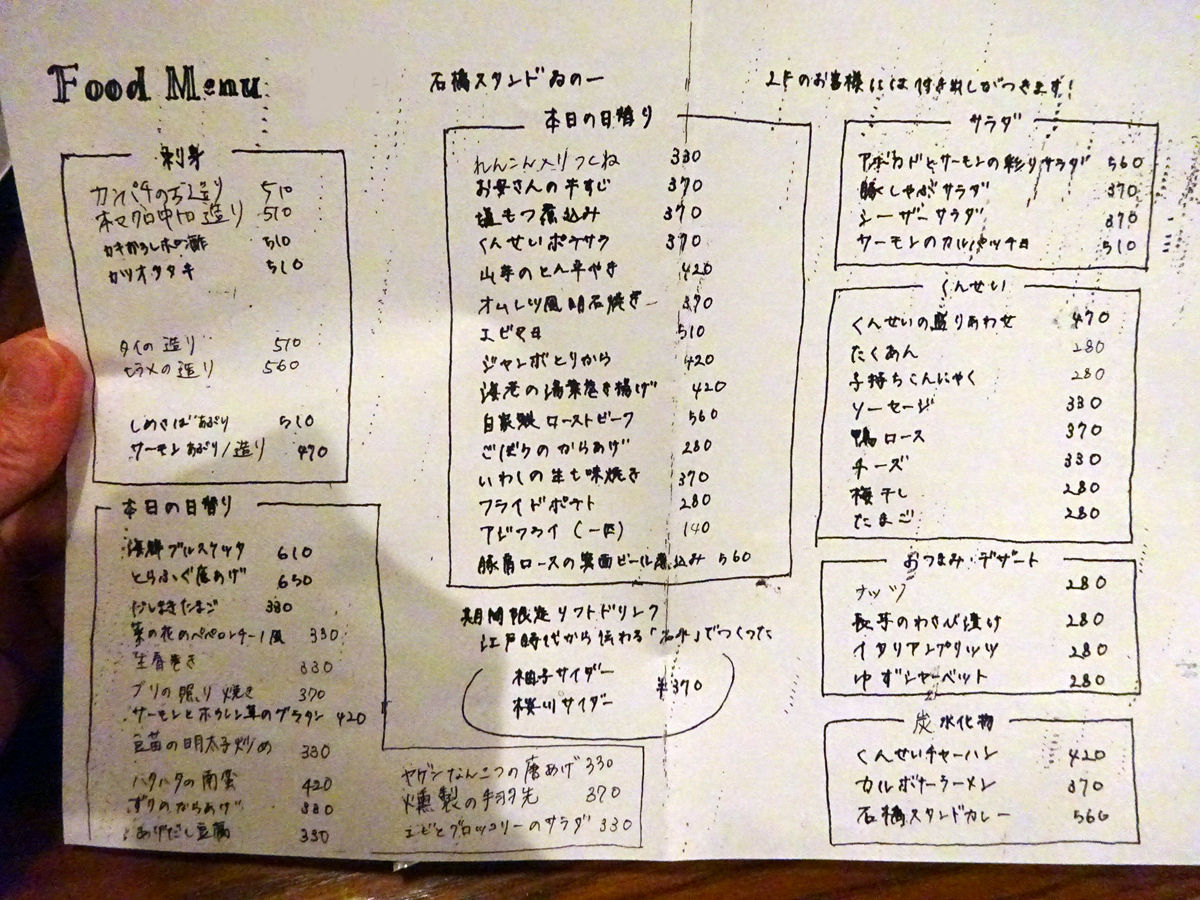 Food Menu
石橋スタンドゐの一
2Fのお客様には付き出しがつきます!
刺身
カンパチのお造り 510
本マグロ中トロ造り 510
カキおろしポン酢 510
カツオタタキ 510
タイの造り 510
ヒラメの造り 560
しめさばあぶり 510
サーモンあぶり/造り 470
本日の日替り
海鮮ブルスケッタ 610
とらふぐ唐あげ 630
だしまきたまご 330
菜の花のペペロンチーノ風 330
生春巻き 330
ブリの照り焼き 370
サーモンとホウレン草のグラタン 420
豆苗の明太子炒め 330
ハタハタの南蛮 420
ずりのからあげ 330
あげだし豆腐 330
ヤゲンなんこつの唐あげ 330
燻製の手羽先 370
エビとブロッコリーのサラダ 330
本日の日替り
れんこん入りつくね 330
お母さんの牛すじ 370
塩もつ煮込み 370
くんせいポテサラ 370
山芋のとん平やき 420
オムレツ風明石焼き 370
エビマヨ 510
ジャンボとりから 420
海老の湯葉巻き揚げ 420
自家製ローストビーフ 560
ごぼうのからあげ 280
いわしの生七味焼き 370
フライドポテト 280
アジフライ(一匹) 140
豚肩ロースの箕面ビール煮込み 560
期間限定ソフトドリンク
江戸時代から伝わる「」でつくった
柚子サイダー
桜川サイダー
¥370
サラダ
アボカドとサーモンの彩りサラダ 560
豚しゃぶサラダ 370
シーザーサラダ 370
サーモンのカルパッチョ 510
くんせい
くんせいの盛りあわせ 470
たくあん 280
子持ちこんにゃく 280
ソーセージ 330
鴨ロース 370
チーズ 330
梅干し 280
たまご 280
おつまみ・デザート
ナッツ 280
長芋のわさび漬け 280
イタリアンプリッツ 280
ゆずシャーベット 280
炭水化物
くんせいチャーハン 420
カルボナーラーメン 370
石橋スタンドカレー 560